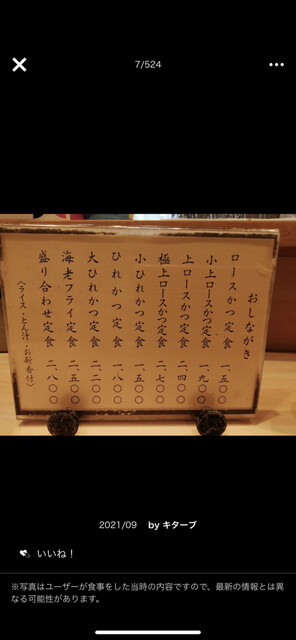 7/524
おしながき
ロースかつ定食 一、五〇〇
小上ロースかつ定食 一、九〇〇
上ロースかつ定食 二、四〇〇
極上ロースかつ定食 二、七〇〇
小ひれかつ定食 一、五〇〇
ひれかつ定食 一、八〇〇
大ひれかつ定食 二、二〇〇
海老フライ定食 二、五〇〇
盛り合わせ定食 二、八〇〇
〈ライス・とん汁・お新香付〉
2021/09 by キターブ
いいね！
※写真はユーザーが食事をした当時の内容ですので、最新の情報とは異
なる可能性があります。